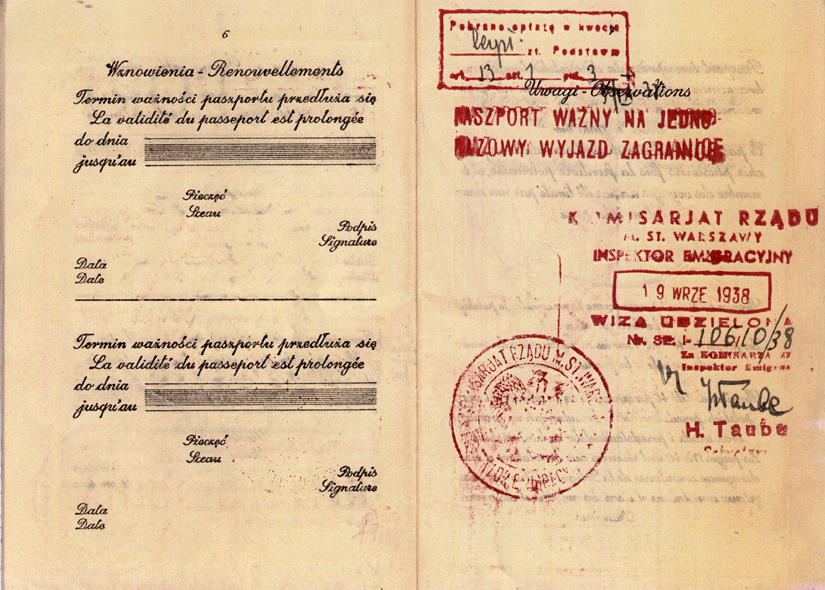 6
Wznowienia - Renouvellements
Termin ważności paszportu przedłuża się
La validité du passeport est prolongée
do dnia
jusqu'au
Pieczęć
Sceau
Podpis
Signature
Data
Date
Termin ważności paszportu przedłuża się
La validité du passeport est prolongée
do dnia
jusqu'au
Pieczęć
Sceau
Podpis
Signature
Data
Date
Pobrano opłatę w kwocie
zł. Podstawa
art. 13 ust. 1 pkt. 3
Uwagi - Observations
PASZPORT WAŻNY NA JEDNO-
RAZOWY WYJAZD ZAGRANICĘ
KOMISARJAT RZĄDU
M. ST. WARSZAWY
INSPEKTOR EMIGRACYJNY
19 WRZE 1938
WIZA UDZIELONA
Za KOMISARZA
Inspektor Emigra
H. Taube
KOMISARJAT RZĄDU M. ST. WARSZAWY